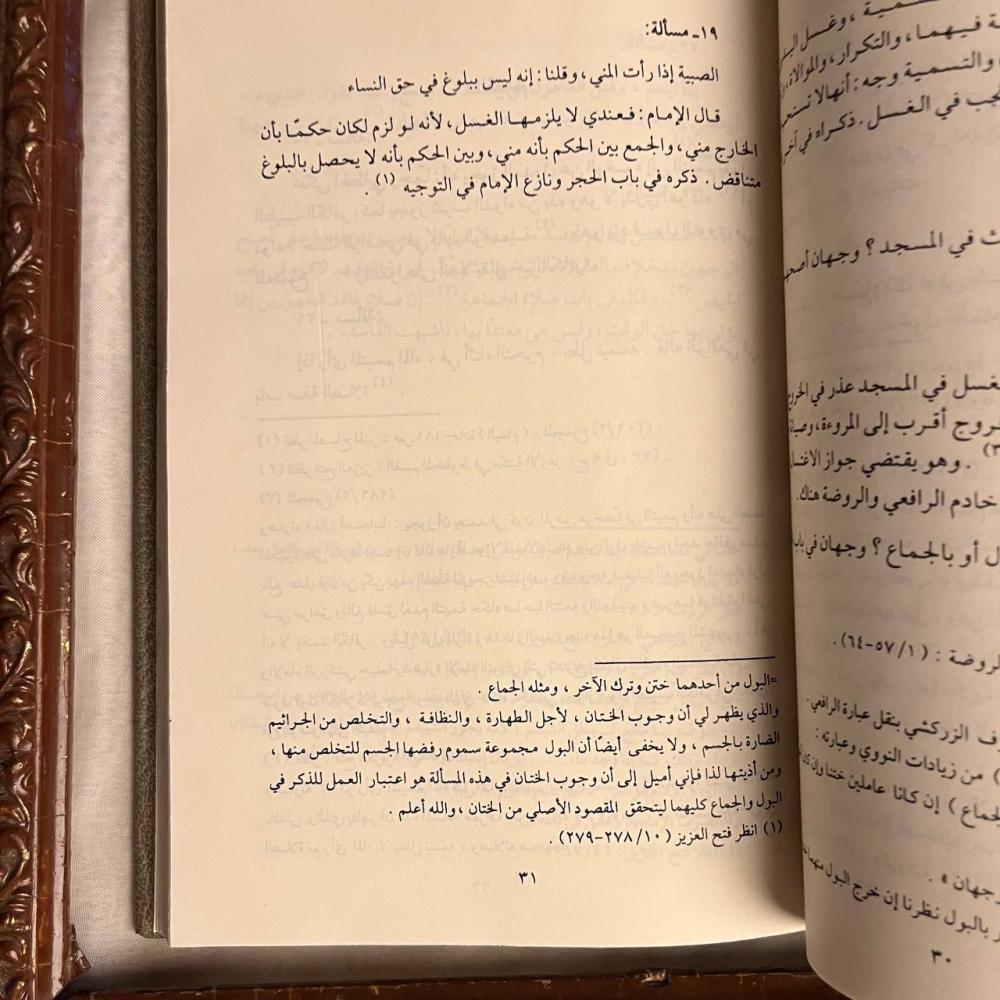 ١٩ـ مسألة:
الصبية إذا رأت المني، وقلنا: إنه ليس ببلوغ في حق النساء
قال الإمام: فعندي لا يلزمها الغسل، لأنه لو لزم لكان حكمًا بأن
الخارج مني، والجمع بين الحكم بأنه مني، وبين الحكم بأنه لا يحصل بالبلوغ
متناقض. ذكره في باب الحجر ونازع الإمام في التوجيه (١).
=البول من أحدهما ختن وترك الآخر، ومثله الجماع.
والذي يظهر لي أن وجوب الختان، لأجل الطهارة، والنظافة، والتخلص من الجراثيم
الضارة بالجسم، ولا يخفى أيضًا أن البول مجموعة سموم رفضها الجسم للتخلص منها،
ومن أذيتها لذا فإني أميل إلى أن وجوب الختان في هذه المسألة هو اعتبار العمل للذكر في
البول والجماع كليهما ليتحقق المقصود الأصلي من الختان، والله أعلم.
(١) انظر فتح العزيز (١٠/ ٢٧٨-٢٧٩).
٣١
وغسل
فيهما، والتكرار، والموالاة،
والتسمية وجه: أنها لا
في الغسل. ذكراه في آخر
في المسجد؟ وجهان
في المسجد عذر في
أقرب إلى المروءة،
. وهو يقتضي جواز
خادم الرافعي والروضة هناك.
أو بالجماع؟ وجهان في
: (١/ ٥٧-٦٤).
الزركشي بنقل عبارة الرافعي.
من زيادات النووي وعبارته:
) إن كانا عاملين ختنا وإن
وجهان».
بالبول نظرنا إن خرج البول منهما
٣٠